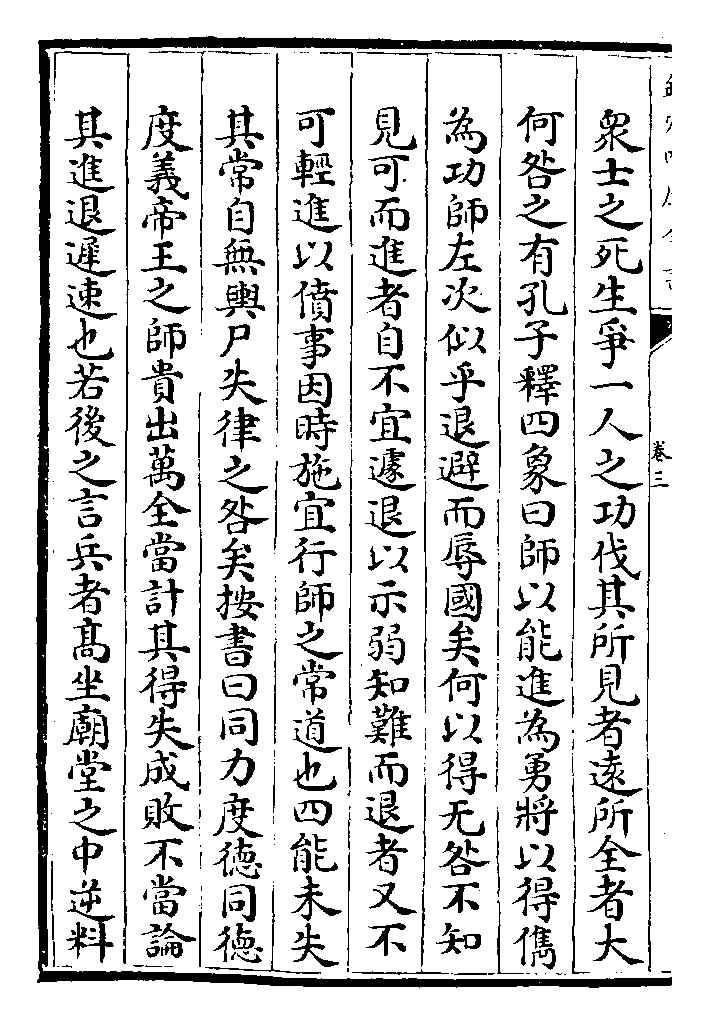 衆士之死生爭一人之功伐其所見者遠所全者大
何咎之有孔子釋四象曰師以能進為勇將以得儁
為功師左次似乎退避而辱國矣何以得无咎不知
見可而進者自不宜遽退以示弱知難而退者又不
可輕進以僨事因時施宜行師之常道也四能未失
其常自無輿尸失律之咎矣按書曰同力度德同德
度義帝王之師貴出萬全當計其得失成敗不當論
其進退遲速也若後之言兵者髙坐廟堂之中逆料
卷三